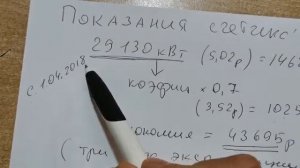 Показания счетчик
29130 кВт (5,02р) = 146
с 1.04.2018.
коэффи x 0,7
(3,52р) = 1025
= 43695р
(три